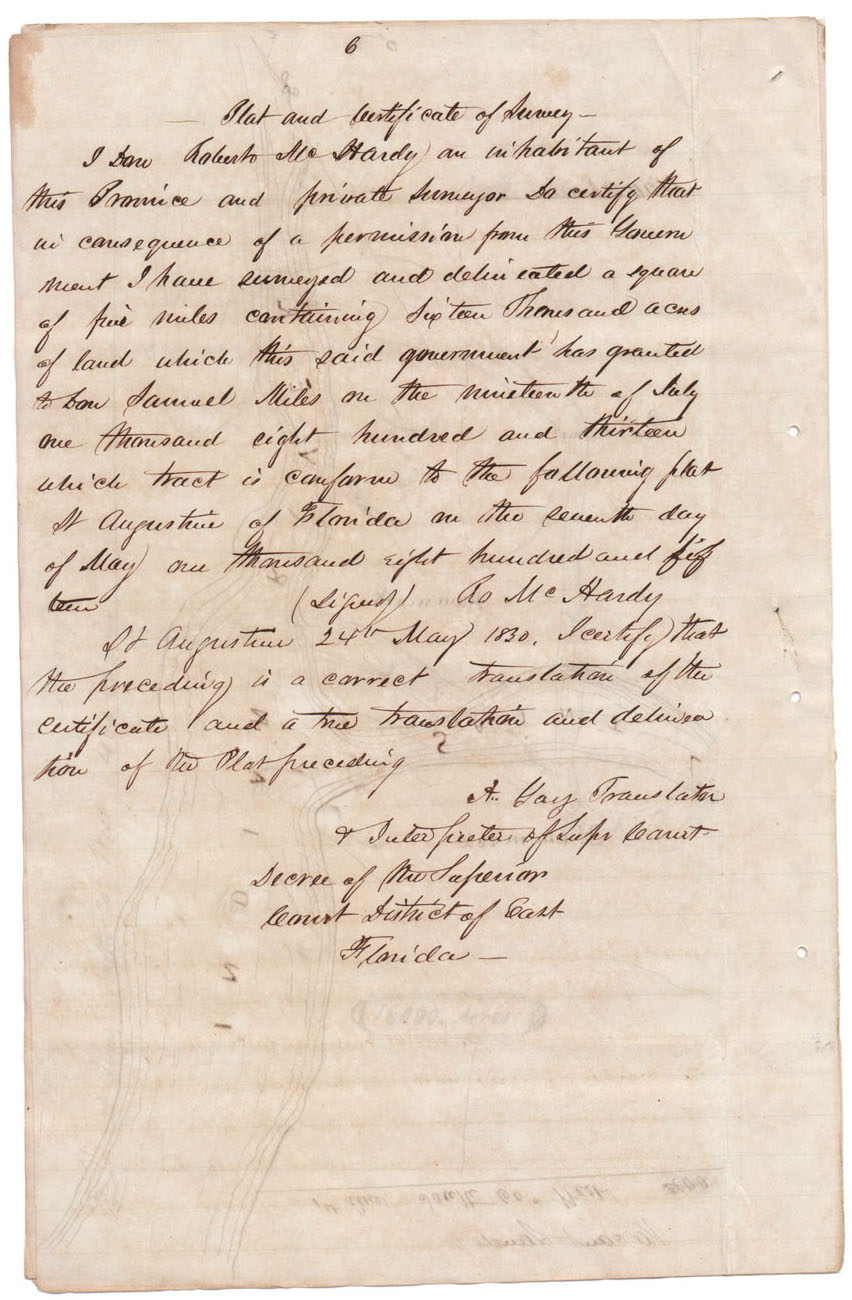 6
— Plat and Certificate of Survey —
I Don Roberto Mc Hardy an inhabitant of
this Province and private Surveyor Do certify that
in consequence of a permission from this Govern
ment I have surveyed and delineated a square
of five miles containing Sixteen Thousand acres
of land which this said government has granted
to Don Samuel Miles on the nineteenth of July
one thousand eight hundred and thirteen
which tract is conform to the following plat
St Augustine of Florida on the seventh day
of May one thousand eight hundred and fif
teen (Signed) Ro Mc Hardy
St Augustine 24th May 1830. I certify that
the preceding is a correct translation of the
certificate and a true translation and delinea
tion of the Plat preceding
A. Gay Translator
& Interpreter of Supr Court
Decree of the Superior
Court District of East
Florida —
16000 Acres